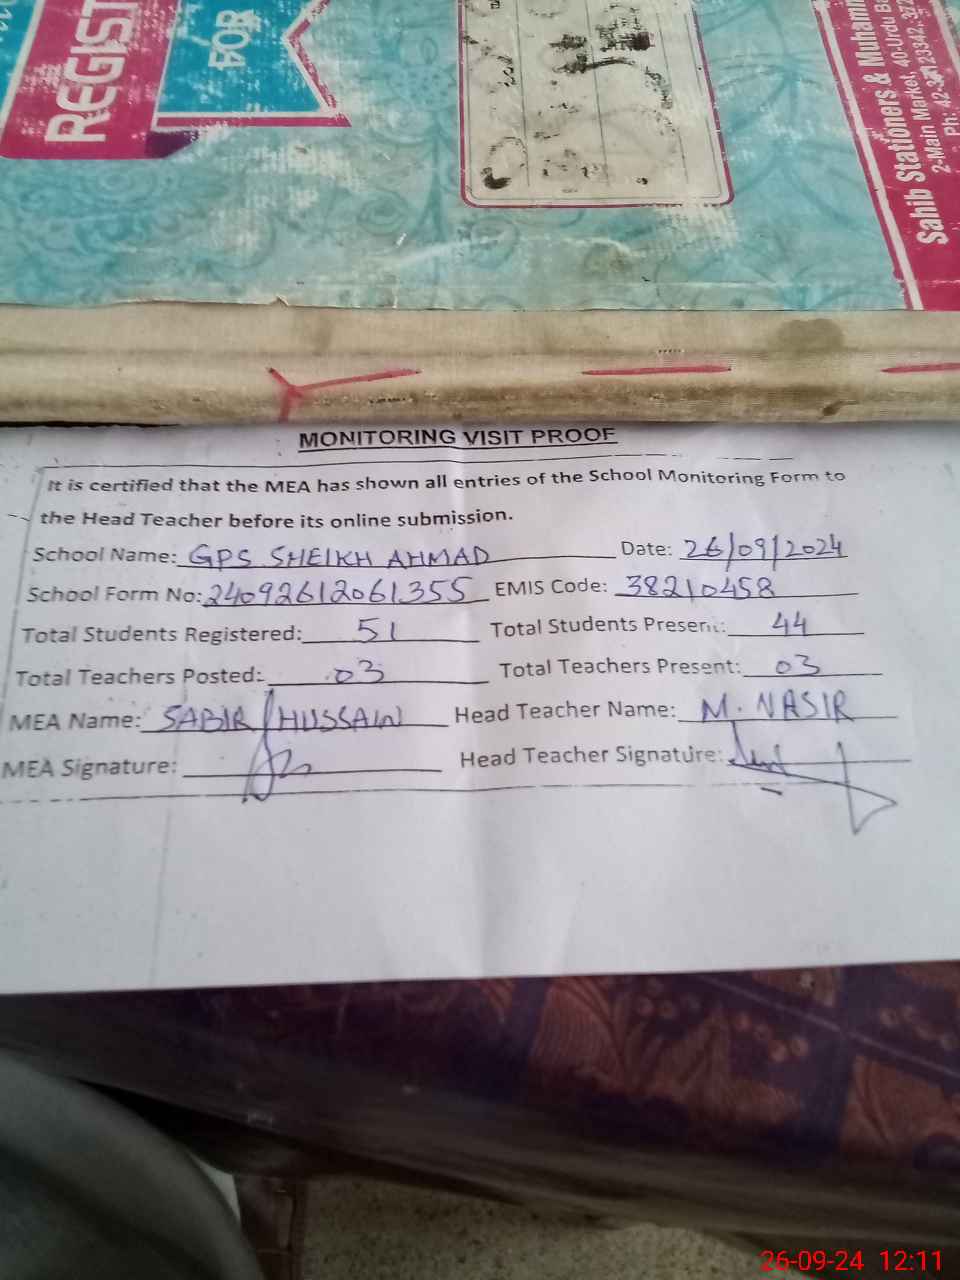 REGIST
FOR
Sahib Stationers & Muhamm
2-Main Market, 40-Urdu Ba
MONITORING VISIT PROOF
It is certified that the MEA has shown all entries of the School Monitoring Form to
the Head Teacher before its online submission.
School Name: GPS SHEIKH AHMAD Date: 26/09/2024
School Form No: 24092612061355 EMIS Code: 38210458
Total Students Registered: 51 Total Students Present: 44
Total Teachers Posted: 03 Total Teachers Present: 03
MEA Name: SABIR HUSSAIN Head Teacher Name: M. NASIR
MEA Signature: Head Teacher Signature:
26-09-24 12:11